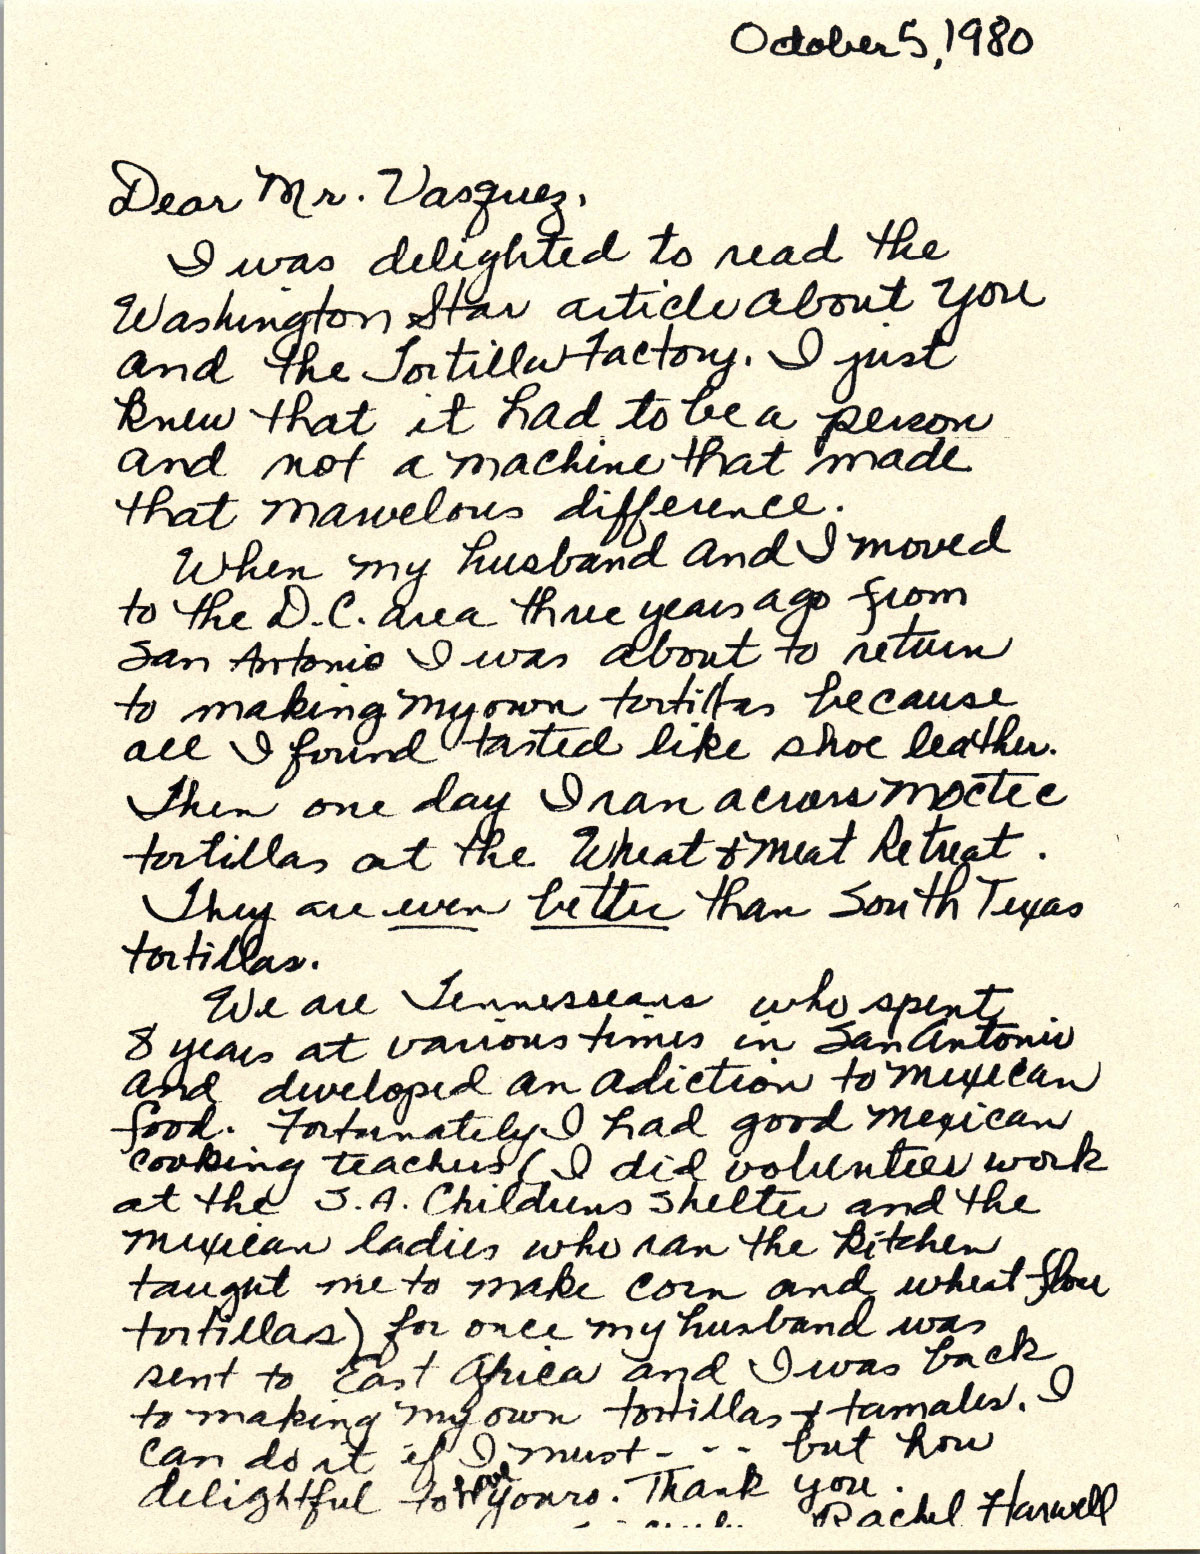 October 5, 1980
Dear Mr. Vasquez.
I was delighted to read the
Washington Star article about you
and the Tortilla Factory. I just
knew that it had to be a person
and not a machine that made
that marvelous difference.
When my husband and I moved
to the D.C. area three years ago from
San Antonio I was about to return
to making my own tortillas because
all I found tasted like shoe leather.
Then one day I ran across Moctec
tortillas at the Wheat & Meat Retreat.
They are even better than South Texas
tortillas.
We are Tennesseans who spent
8 years at various times in San Antonio
and developed an adiction to Mexican
food. Fortunately I had good Mexican
cooking teachers (I did volunteer work
at the S.A. Childrens Shelter and the
Mexican ladies who ran the kitchen
taught me to make corn and wheat flour
tortillas) for once my husband was
sent to East Africa and I was back
to making my own tortillas & tamales. I
can do it if I must - - - but how
delightful to have yours. Thank you.
Rachel Harwell